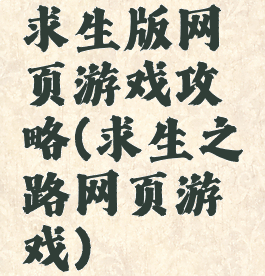 求生版网
页游戏攻
略(求生之
路网页游
戏)